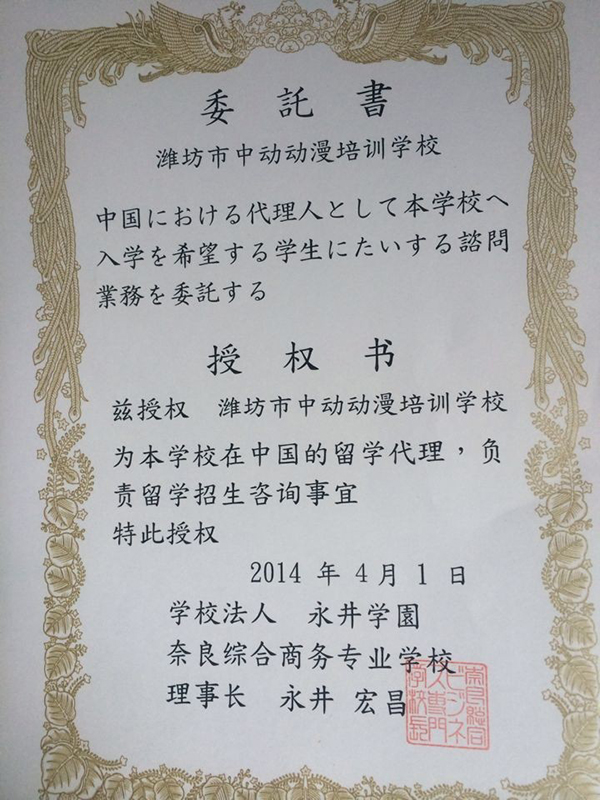 委託書
潍坊市中动动漫培训学校
中国における代理人として本学校へ
入学を希望する学生にたいする諮問
業務を委託する
授权书
兹授权 潍坊市中动动漫培训学校
为本学校在中国的留学代理，负
责留学招生咨询事宜
特此授权
2014 年 4 月 1 日
学校法人 永井学園
奈良综合商务专业学校
理事长 永井 宏昌